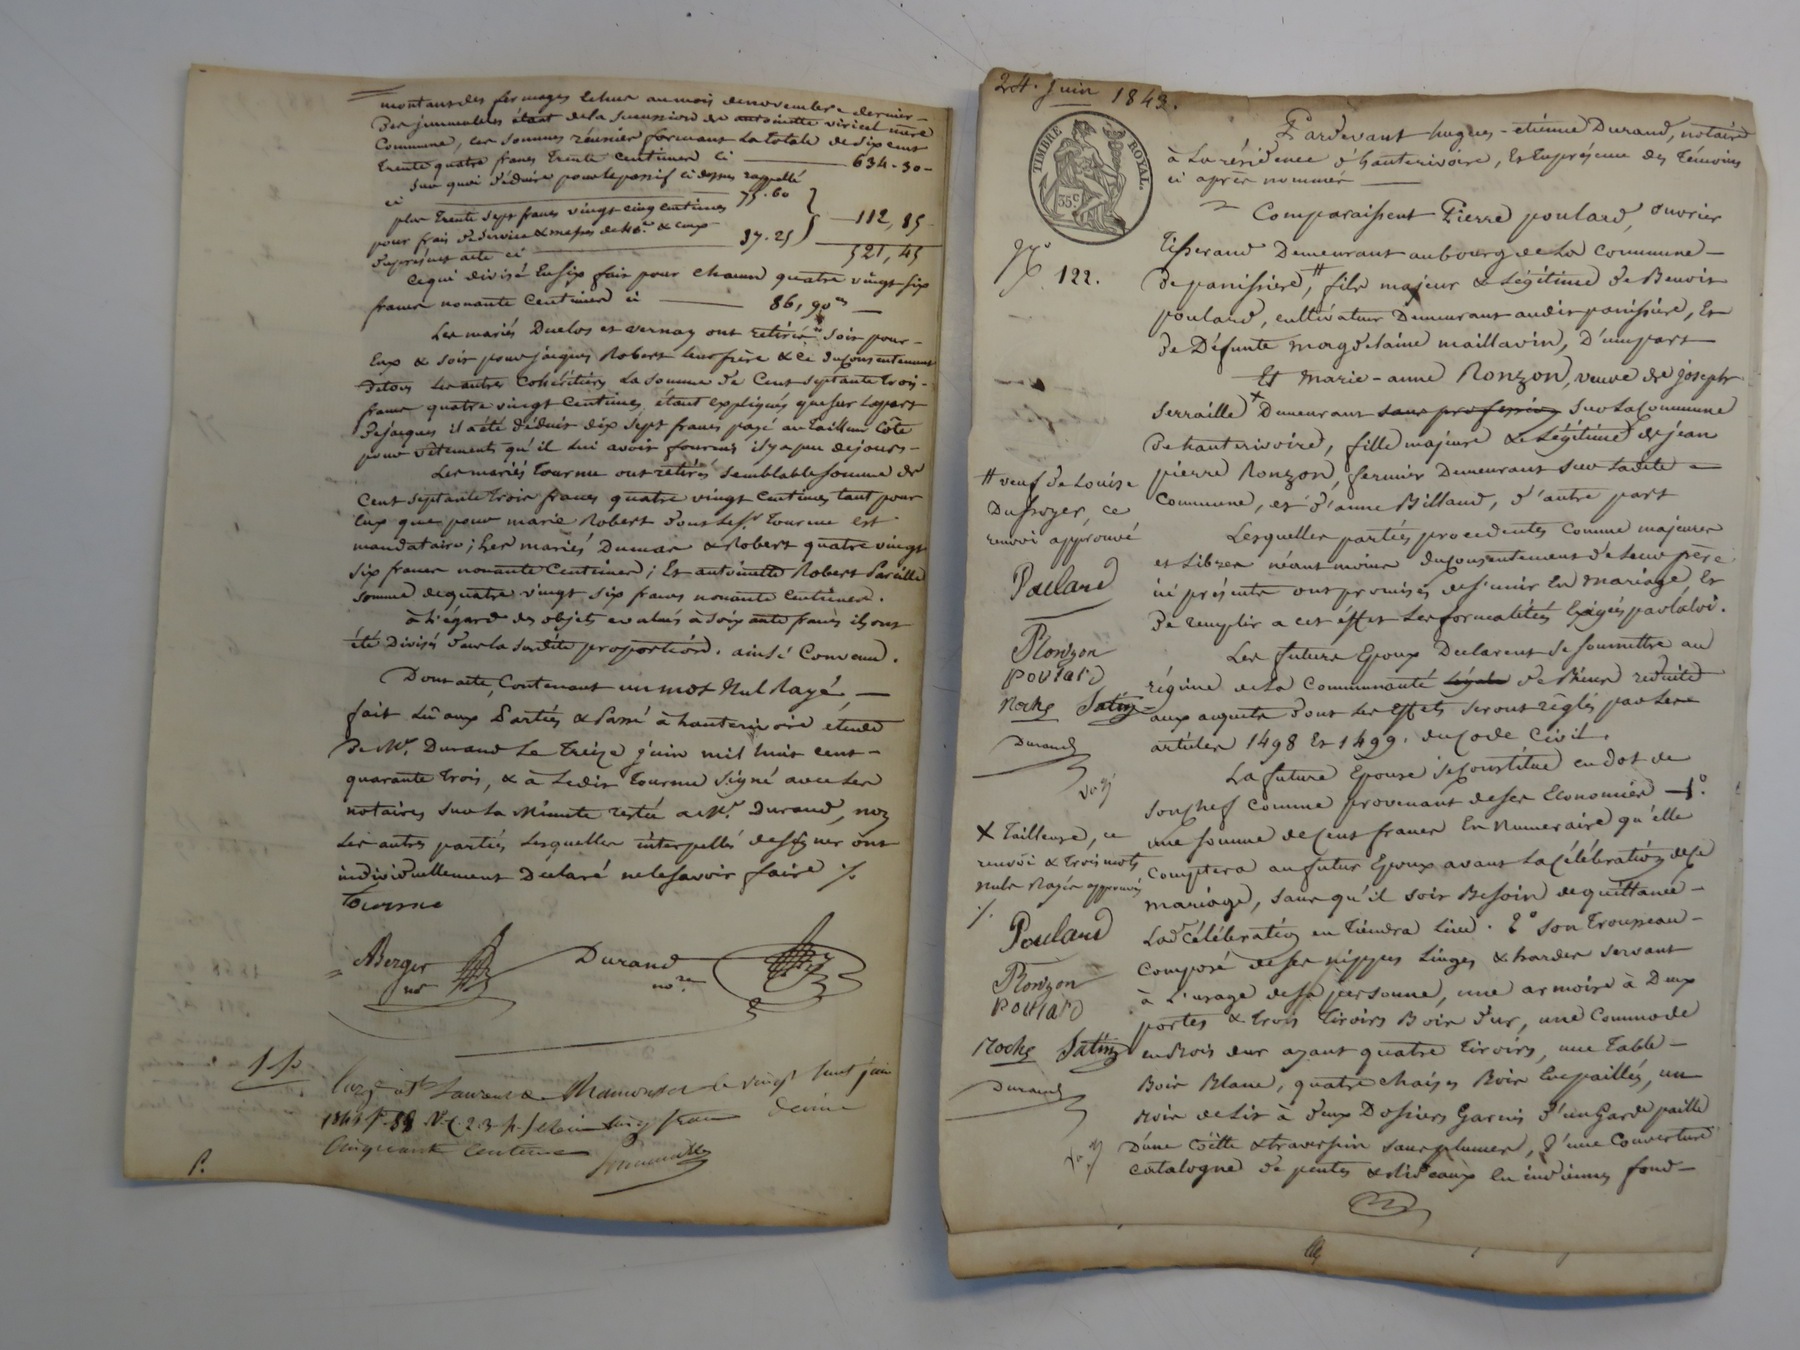 montant des fermages échus au mois de novembre dernier
des immeubles étant de la succession de antoinette viricel mère
Commune, les sommes réunies formant la totale de six cent
trente quatre francs trente centimes ci 634.30
Sur quoi déduire pour le passif ci dessus rappellé
ci 75.60
plus trente sept francs vingt cinq centimes
pour frais de service & messes de & coup
du présent acte ci 37.25
112,85
521,45
Ce qui divisé en six fait pour chacun quatre vingt six
francs nonante centimes ci 86,90
Les mariés Duclos et vernay ont retirés soit pour
Eux & soit pour jacques Robert leur frère & ce du consentement
de tous les autres cohéritiers la somme de Cent septante trois
francs quatre vingt centimes, étant expliqué que sur la part
de jacques il a été déduit dix sept francs payé au tailleur Côte
pour vêtements qu'il lui avoit fournis il y a peu de jours
Les mariés tourne ont retirés semblable somme de
Cent septante trois francs quatre vingt centimes tant pour
Eux que pour marie Robert dont led. tourne est
mandataire; les mariés Dumas & Robert quatre vingt
six francs nonante centimes; Et antoinette Robert Pareille
somme de quatre vingt six francs nonante centimes.
à l'égard des objets évalués à soixante francs ils ont
été Divisés dans la susdite proportion. ainsi Convenu.
Dont acte, Contenant un mot Nul Rayé,
fait Lu aux Parties & Passé à hauterivoire étude
de Me. Durand Le treize juin mil huit cent
quarante trois, & à Ledit tourne signé avec les
notaires sur la Minute restée à Me. Durand, non
les autres parties lesquelles interpellés de signer ont
individuellement Déclaré ne le savoir faire ./.
tourne
Berger Durand
no no.re
Enrg. à St Laurent de Chamousset le vingt juin
1843 f. 88 Reçu cinq francs
Cinquante Centimes
24. Juin 1843.
TIMBRE ROYAL.
35 c
Pardevant hugues-étienne Durand, notaire
à la résidence d'hauterivoire, Et En présence des témoins
ci après nommés
Comparaissent Pierre poulard, ouvrier
tisserand Demeurant au bourg de la commune
de panissière, # fils majeur & Légitime de Benoit
poulard, cultivateur Demeurant audit panissière, Et
de Défunte magdelaine maillavin, D'une part
Et marie-anne Ronzon, veuve de joseph
Serraille X Demeurant sans profession sur la Commune
de hauterivoire, fille majeure & Légitime de jean
pierre Ronzon, fermier Demeurant sur ladite
Commune, et d'anne Billaud, d'autre part
Lesquelles parties procédentes comme majeures
et libres néant moins du consentement de leur père
ici présents ont promises de s'unir En mariage Et
de remplir a cet effet les formalités Exigés par la loi.
Les futurs Epoux Déclarent se soumettre au
régime de la Communauté légale de Biens réduite
aux acquets dont les Effets seront réglés par les
articles 1498 Et 1499. du Code Civil.
La future Epouse se constitue en dot de
son chef comme provenant de ses Economies 1.°
une somme de Cent francs En Numeraire qu'elle
comptera au futur Epoux avant la célébration de ce
mariage, sans qu'il soit Besoin de quittance
Lad. célébration en tiendra Lieu. 2° son trousseau
composé de ses nippes Linges & hardes servant
à l'usage de sa personne, une armoire à Deux
portes & trois tiroirs Bois dur, une Commode
en Bois dur ayant quatre tiroirs, une table
Bois Blanc, quatre chaises Bois Empaillés, un
Bois de Lit à deux Dossiers Garnis d'un Garde paille
D'une coëtte & traversin sans plumes, d'une Couverture
catalogne de pentes & rideaux En indiennes fond
122.
# veuf de Louise
Dufroyer, ce
renvoi approuvé
Poulard
Ronzon
POULARD
Roche Satin
Durand
X tailleuse, ce
renvoi & trois mots
nuls Rayés approuvés
./.
Poulard
Ronzon
POULARD
Roche Satin
Durand